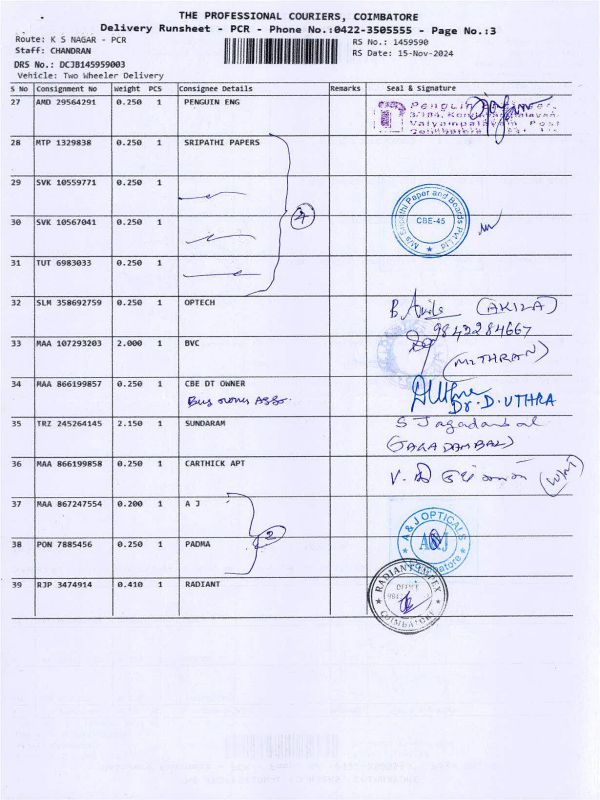 THE PROFESSIONAL COURIERS, COIMBATORE
Delivery Runsheet - PCR - Phone No.:0422-3505555 - Page No.:3
Route: K S NAGAR - PCR
RS No.: 1459590
Staff: CHANDRAN
RS Date: 15-Nov-2024
DRS No.: DCJB145959003
Vehicle: Two Wheeler Delivery
S No Consignment No Weight PCS Consignee Details Remarks Seal & Signature
27 AMD 29564291 0.250 1 PENGUIN ENG
Penguin
3/104,
Valyampalayam Post
28 MTP 1329838 0.250 1 SRIPATHI PAPERS
29 SVK 10559771 0.250 1
30 SVK 10567041 0.250 1
31 TUT 6983033 0.250 1
4
M/s Sripathi Paper and Boards Pvt Ltd
CBE-45
32 SLM 358692759 0.250 1 OPTECH
(AKILA)
9842284667
33 MAA 107293203 2.000 1 BVC
(MITHRAN)
34 MAA 866199857 0.250 1 CBE DT OWNER
Bus owner Asso.
Dr. D. UTHRA
35 TRZ 245264145 2.150 1 SUNDARAM
S Jagadambal
(JAGADAMBAL)
36 MAA 866199858 0.250 1 CARTHICK APT
37 MAA 867247554 0.200 1 A J
38 PON 7885456 0.250 1 PADMA
2
A & J OPTICALS
A&J
Coimbatore
39 RJP 3474914 0.410 1 RADIANT
RADIANT IMPEX
COIMBATORE